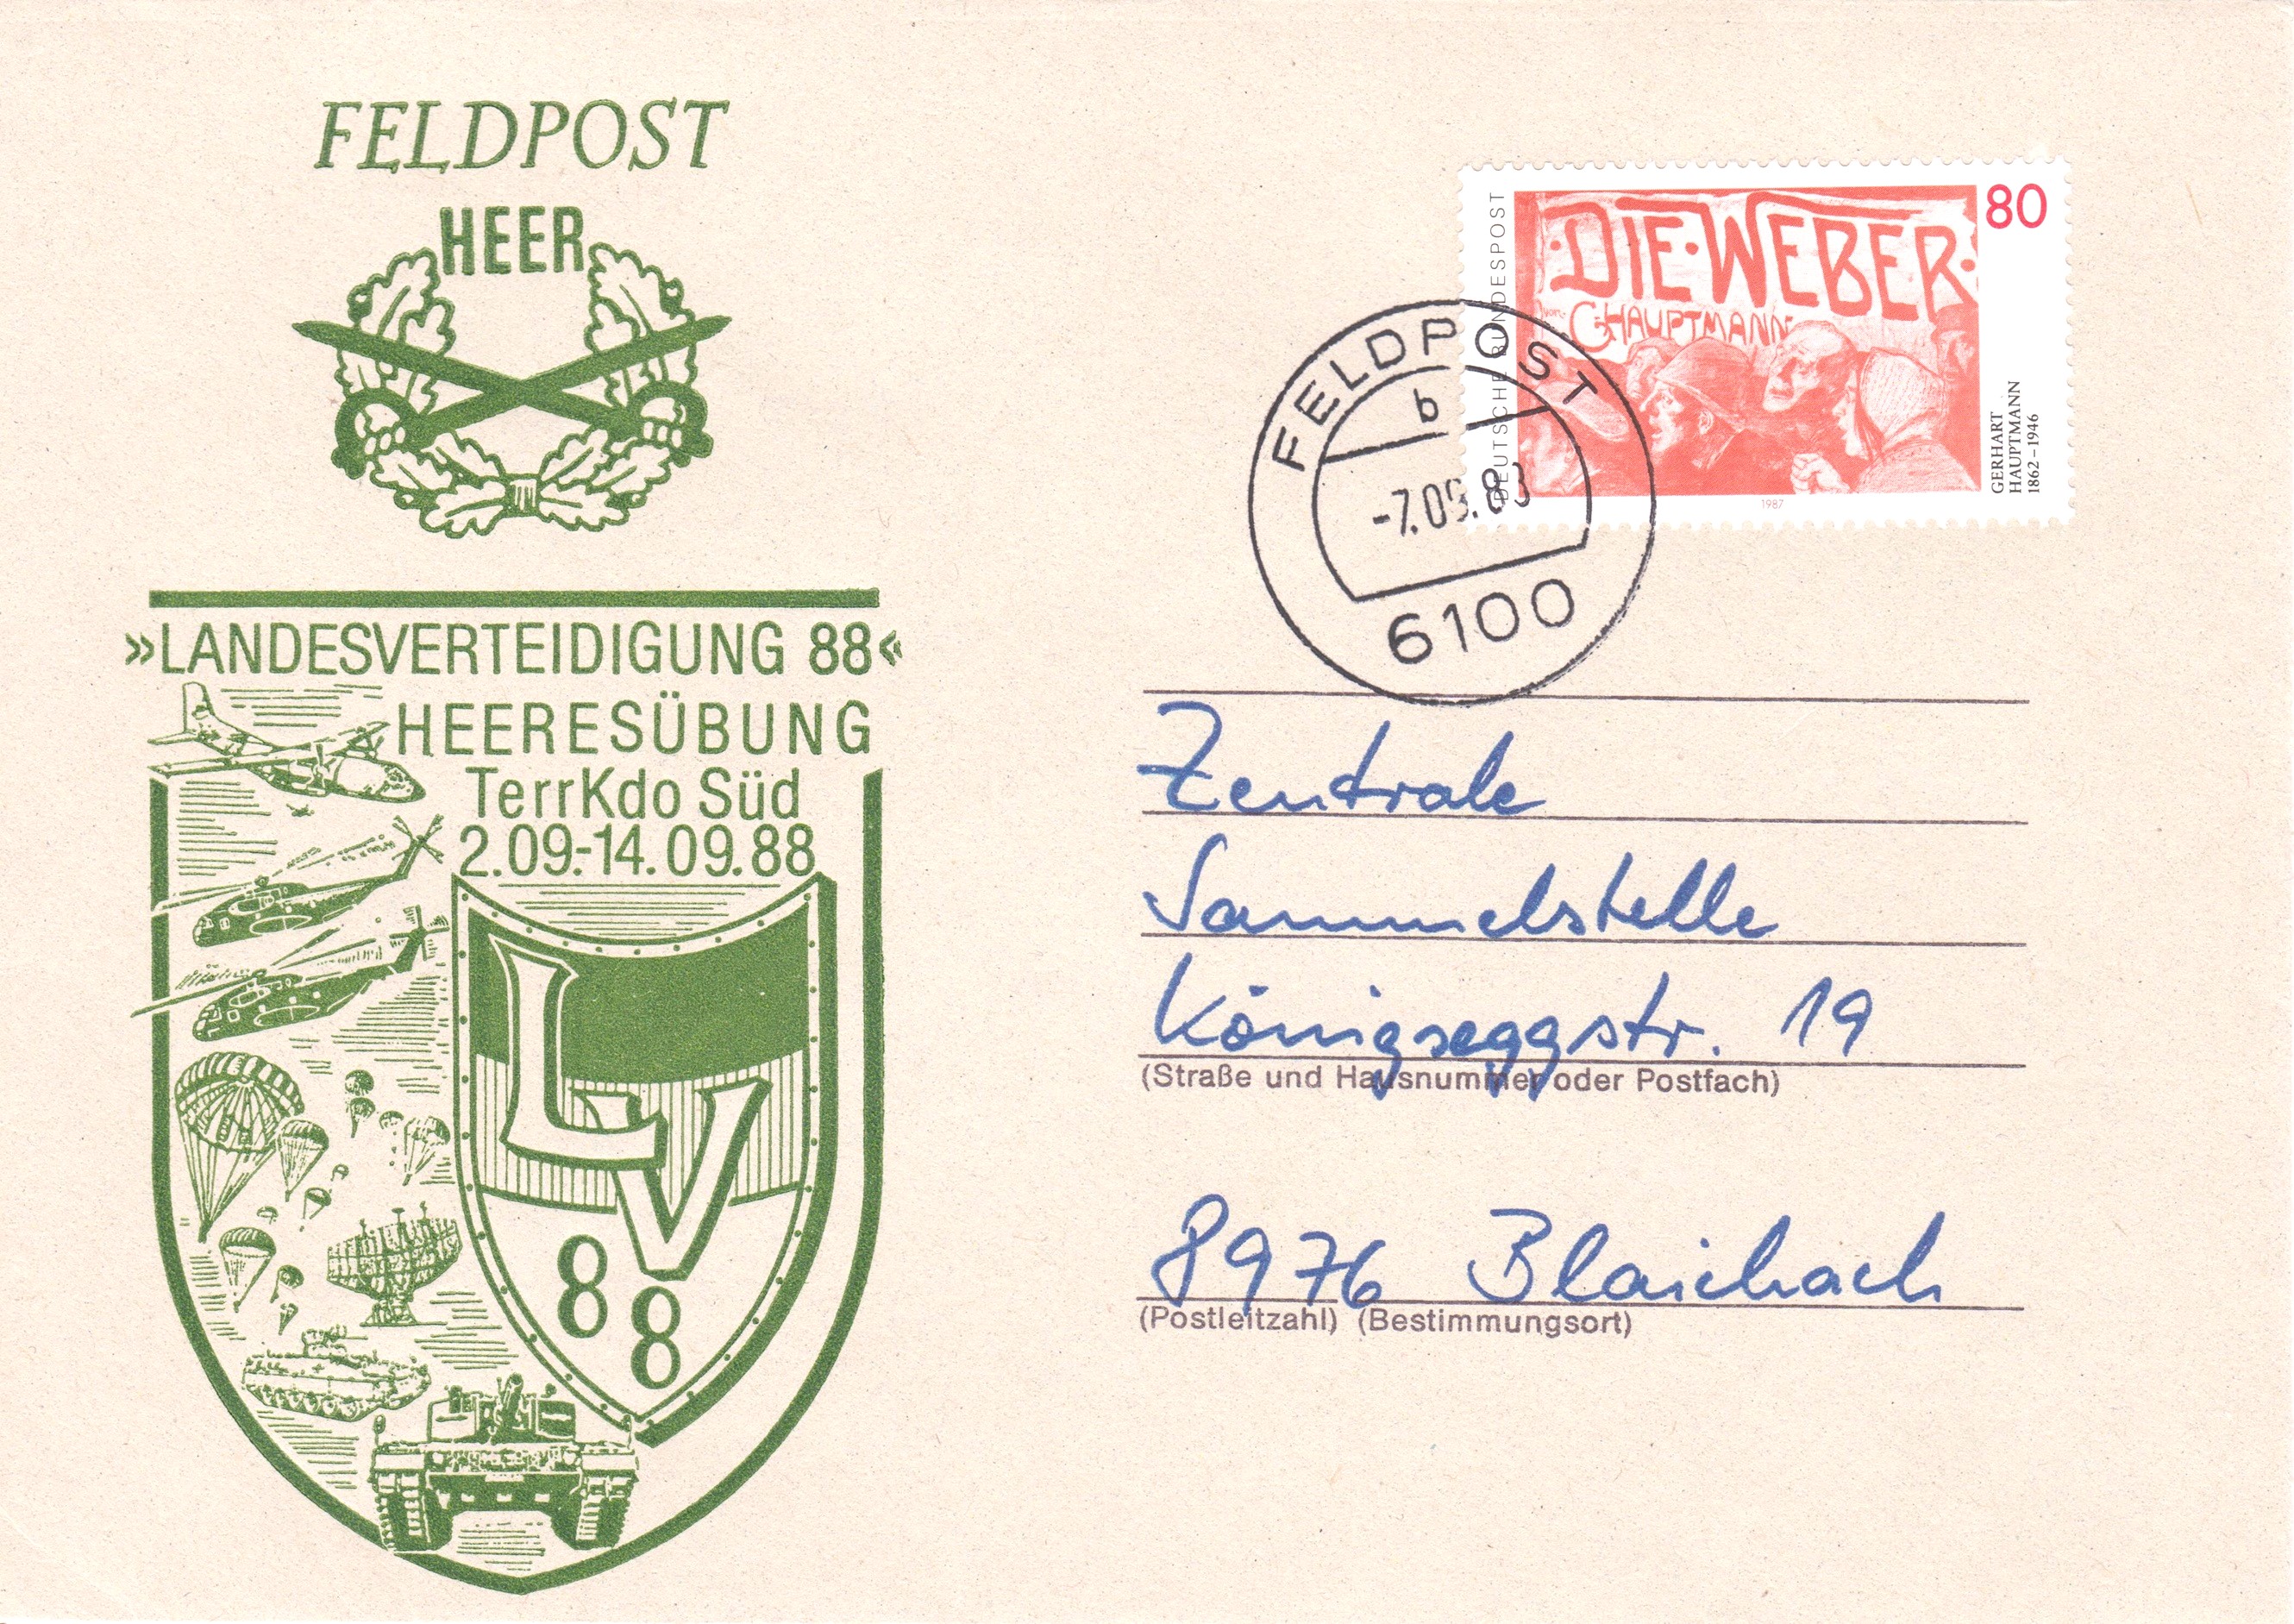 FELDPOST
HEER
»LANDESVERTEIDIGUNG 88«
HEERESÜBUNG
TerrKdo Süd
2.09.-14.09.88
LV
88
DEUTSCHE BUNDESPOST
80
DIE·WEBER·
VON G·HAUPTMANN
GERHART
HAUPTMANN
1862–1946
1987
FELDPOST
b
-7.09.88
6100
Zentrale
Sammelstelle
Königseggstr. 19
(Straße und Hausnummer oder Postfach)
8976 Blaichach
(Postleitzahl) (Bestimmungsort)